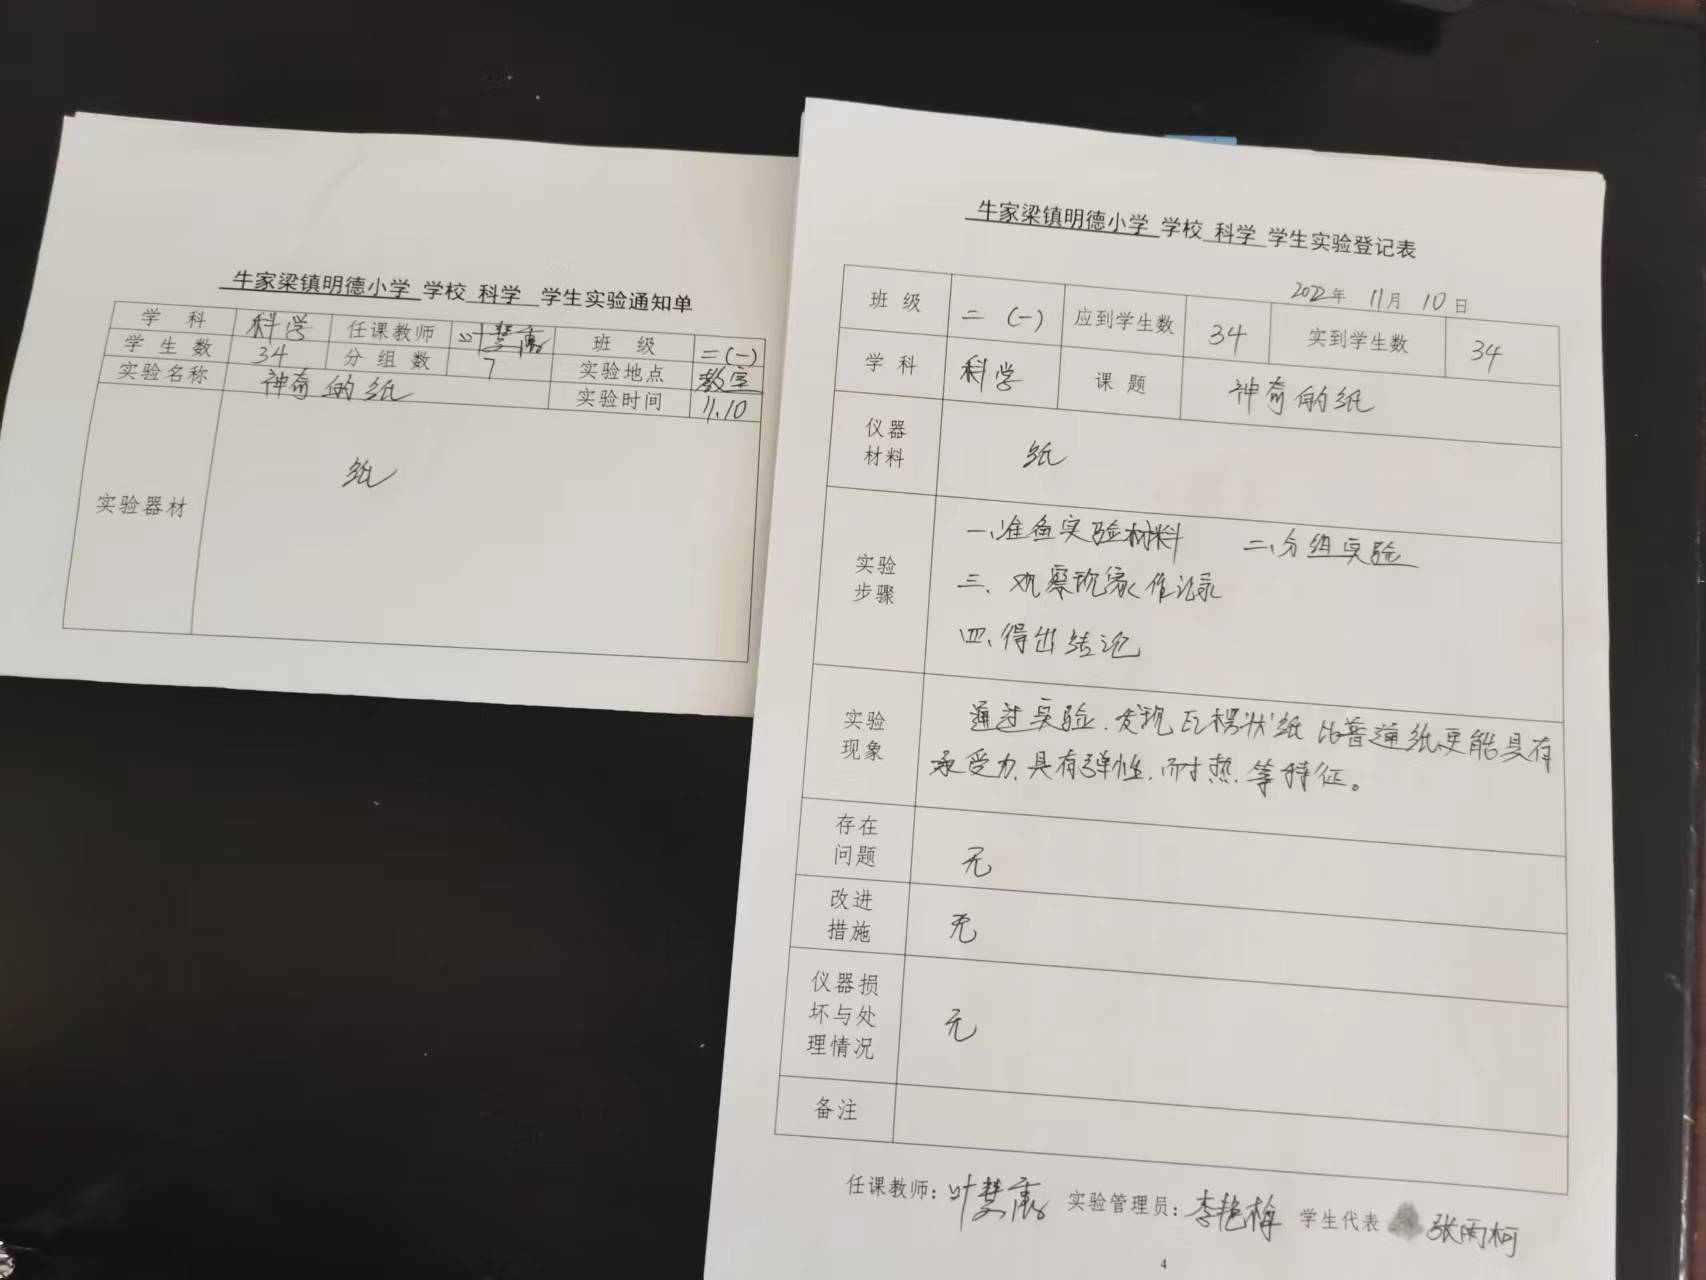 牛家梁镇明德小学 学校 科学 学生实验通知单
学科 科学 任课教师 班级 二(一)
学生数 34 分组数 7 实验地点 教室
实验名称 神奇的纸 实验时间 11.10
实验器材 纸
牛家梁镇明德小学 学校 科学 学生实验登记表
2022年 11月 10日
班级 二(一) 应到学生数 34 实到学生数 34
学科 科学 课题 神奇的纸
仪器
材料
纸
实验
步骤
一、准备实验材料 二、分组实验
三、观察现象作记录
四、得出结论
实验
现象
通过实验,发现瓦楞状纸比普通纸更能具有
承受力,具有弹性,耐热等特征。
存在
问题
无
改进
措施
无
仪器损
坏与处
理情况
无
备注
任课教师: 实验管理员: 李艳梅 学生代表 张雨柯
4